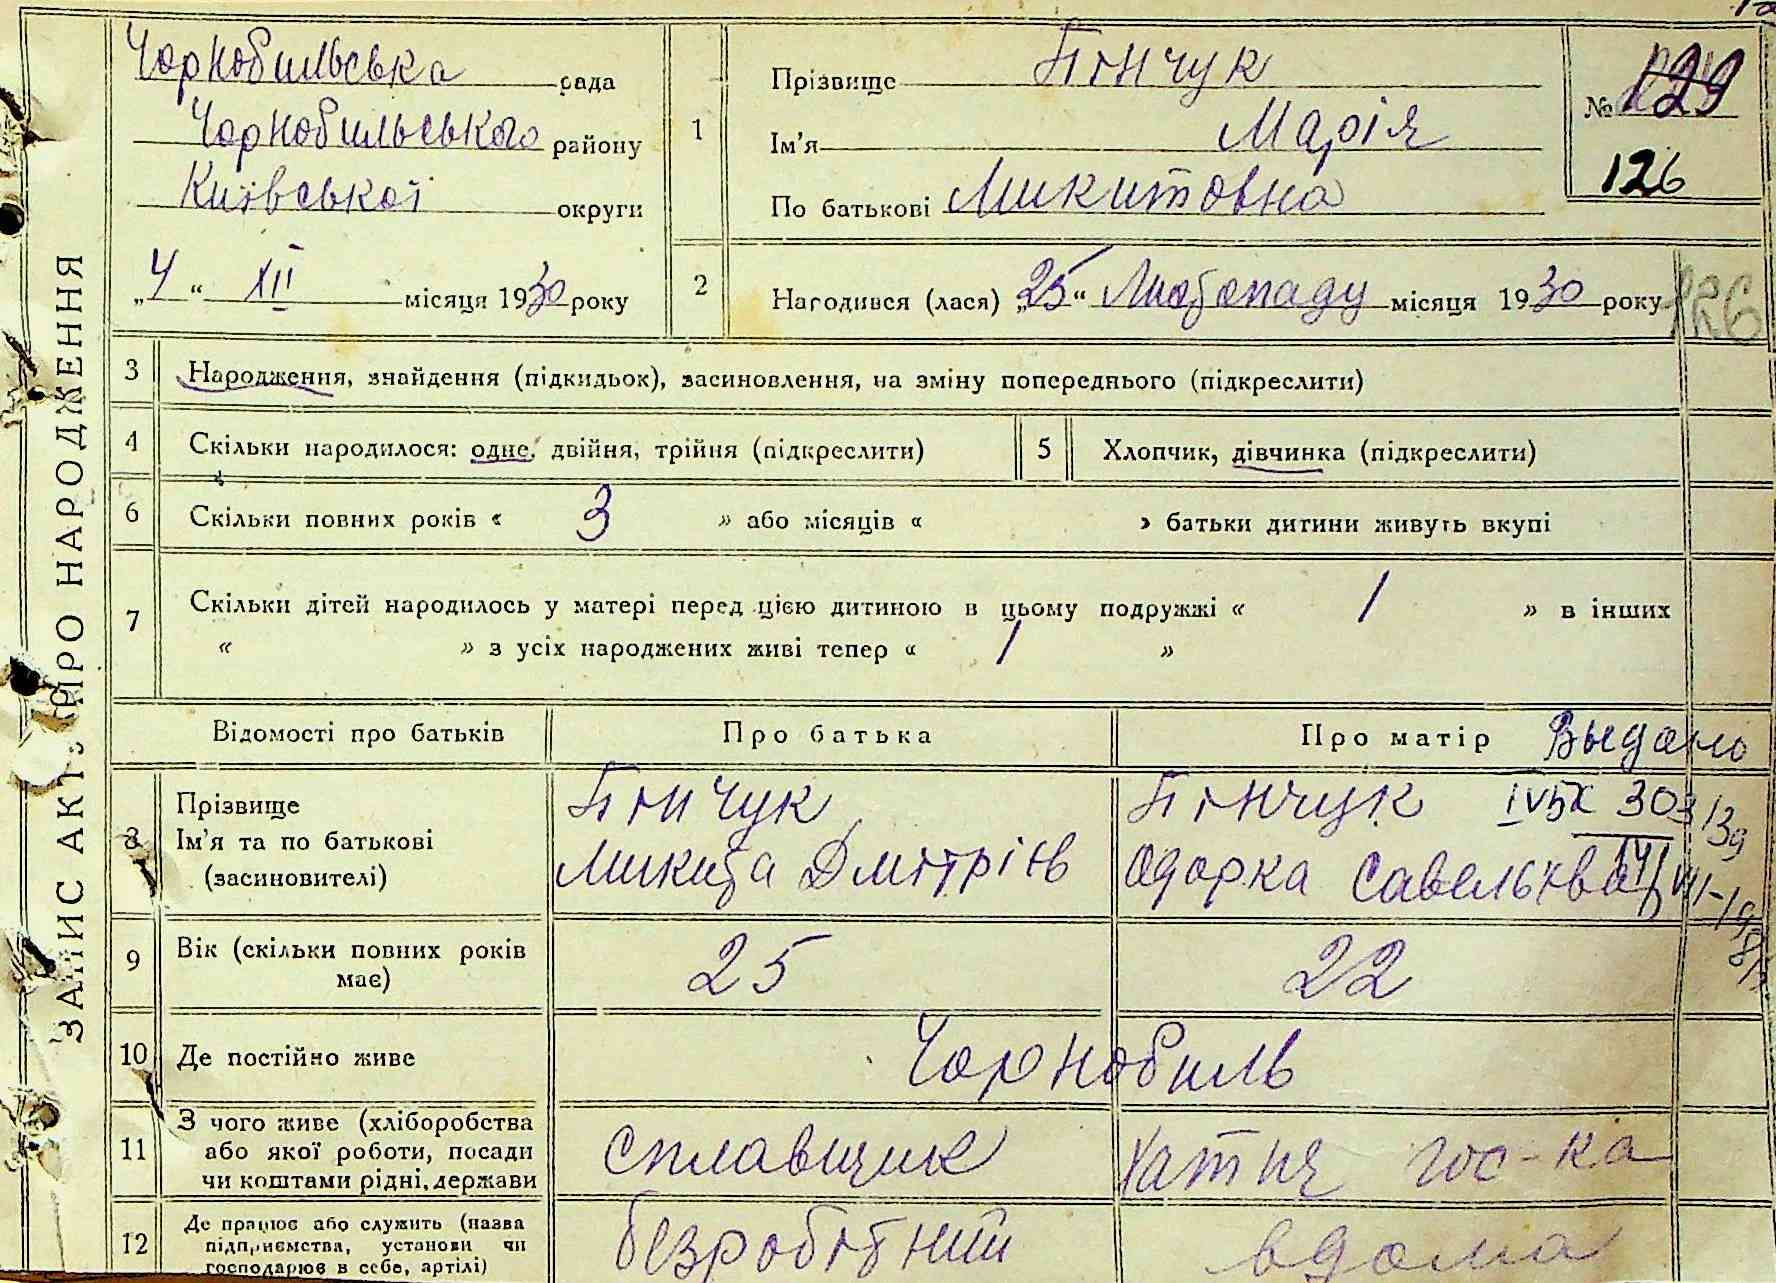 ЗАПИС АКТУ ПРО НАРОДЖЕННЯ
Чорнобильська рада
Чорнобильського району
Київської округи
„4“ XII місяця 1930 року
1
Прізвище Пінчук
Ім’я Марія
По батькові Микитовна
№ 129
126
2
Народився (лася) „25“ Листопаду місяця 1930 року
126
3 Народження, знайдення (підкидьок), засиновлення, на зміну попереднього (підкреслити)
4 Скільки народилося: одне, двійня, трійня (підкреслити)
5 Хлопчик, дівчинка (підкреслити)
6 Скільки повних років « 3 » або місяців « » батьки дитини живуть вкупі
7 Скільки дітей народилось у матері перед цією дитиною в цьому подружжі « 1 » в інших
« » з усіх народжених живі тепер « 1 »
Відомості про батьків
Про батька
Про матір
Выдано
8 Прізвище
Ім’я та по батькові
(засиновителі)
Пінчук
Микита Дмітрієв
Пінчук
Одарка Савельєва
9 Вік (скільки повних років
має)
25
22
10 Де постійно живе
Чорнобиль
11 З чого живе (хліборобства
або якої роботи, посади
чи коштами рідні, держави
сплавщик
хатня гос-ка
12 Де працює або служить (назва
підприємства, установи чи
господарює в себе, артілі)
безробітний
вдома